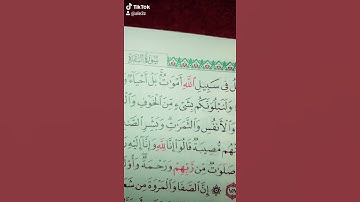 TikTok
سُورَةُ البَقَرَةِ
فِى سَبِيلِ ٱللَّهِ أَمْوَٰتٌۢ بَلْ أَحْيَآءٌ
وَلَنَبْلُوَنَّكُم بِشَىْءٍ مِّنَ ٱلْخَوْفِ
وَٱلْأَنفُسِ وَٱلثَّمَرَٰتِ وَبَشِّرِ
مُّصِيبَةٌ قَالُوٓا۟ إِنَّا لِلَّهِ وَإِنَّآ إِلَيْهِ
صَلَوَٰتٌ مِّن رَّبِّهِمْ وَرَحْمَةٌ
إِنَّ ٱلصَّفَا وَٱلْمَرْوَةَ مِن